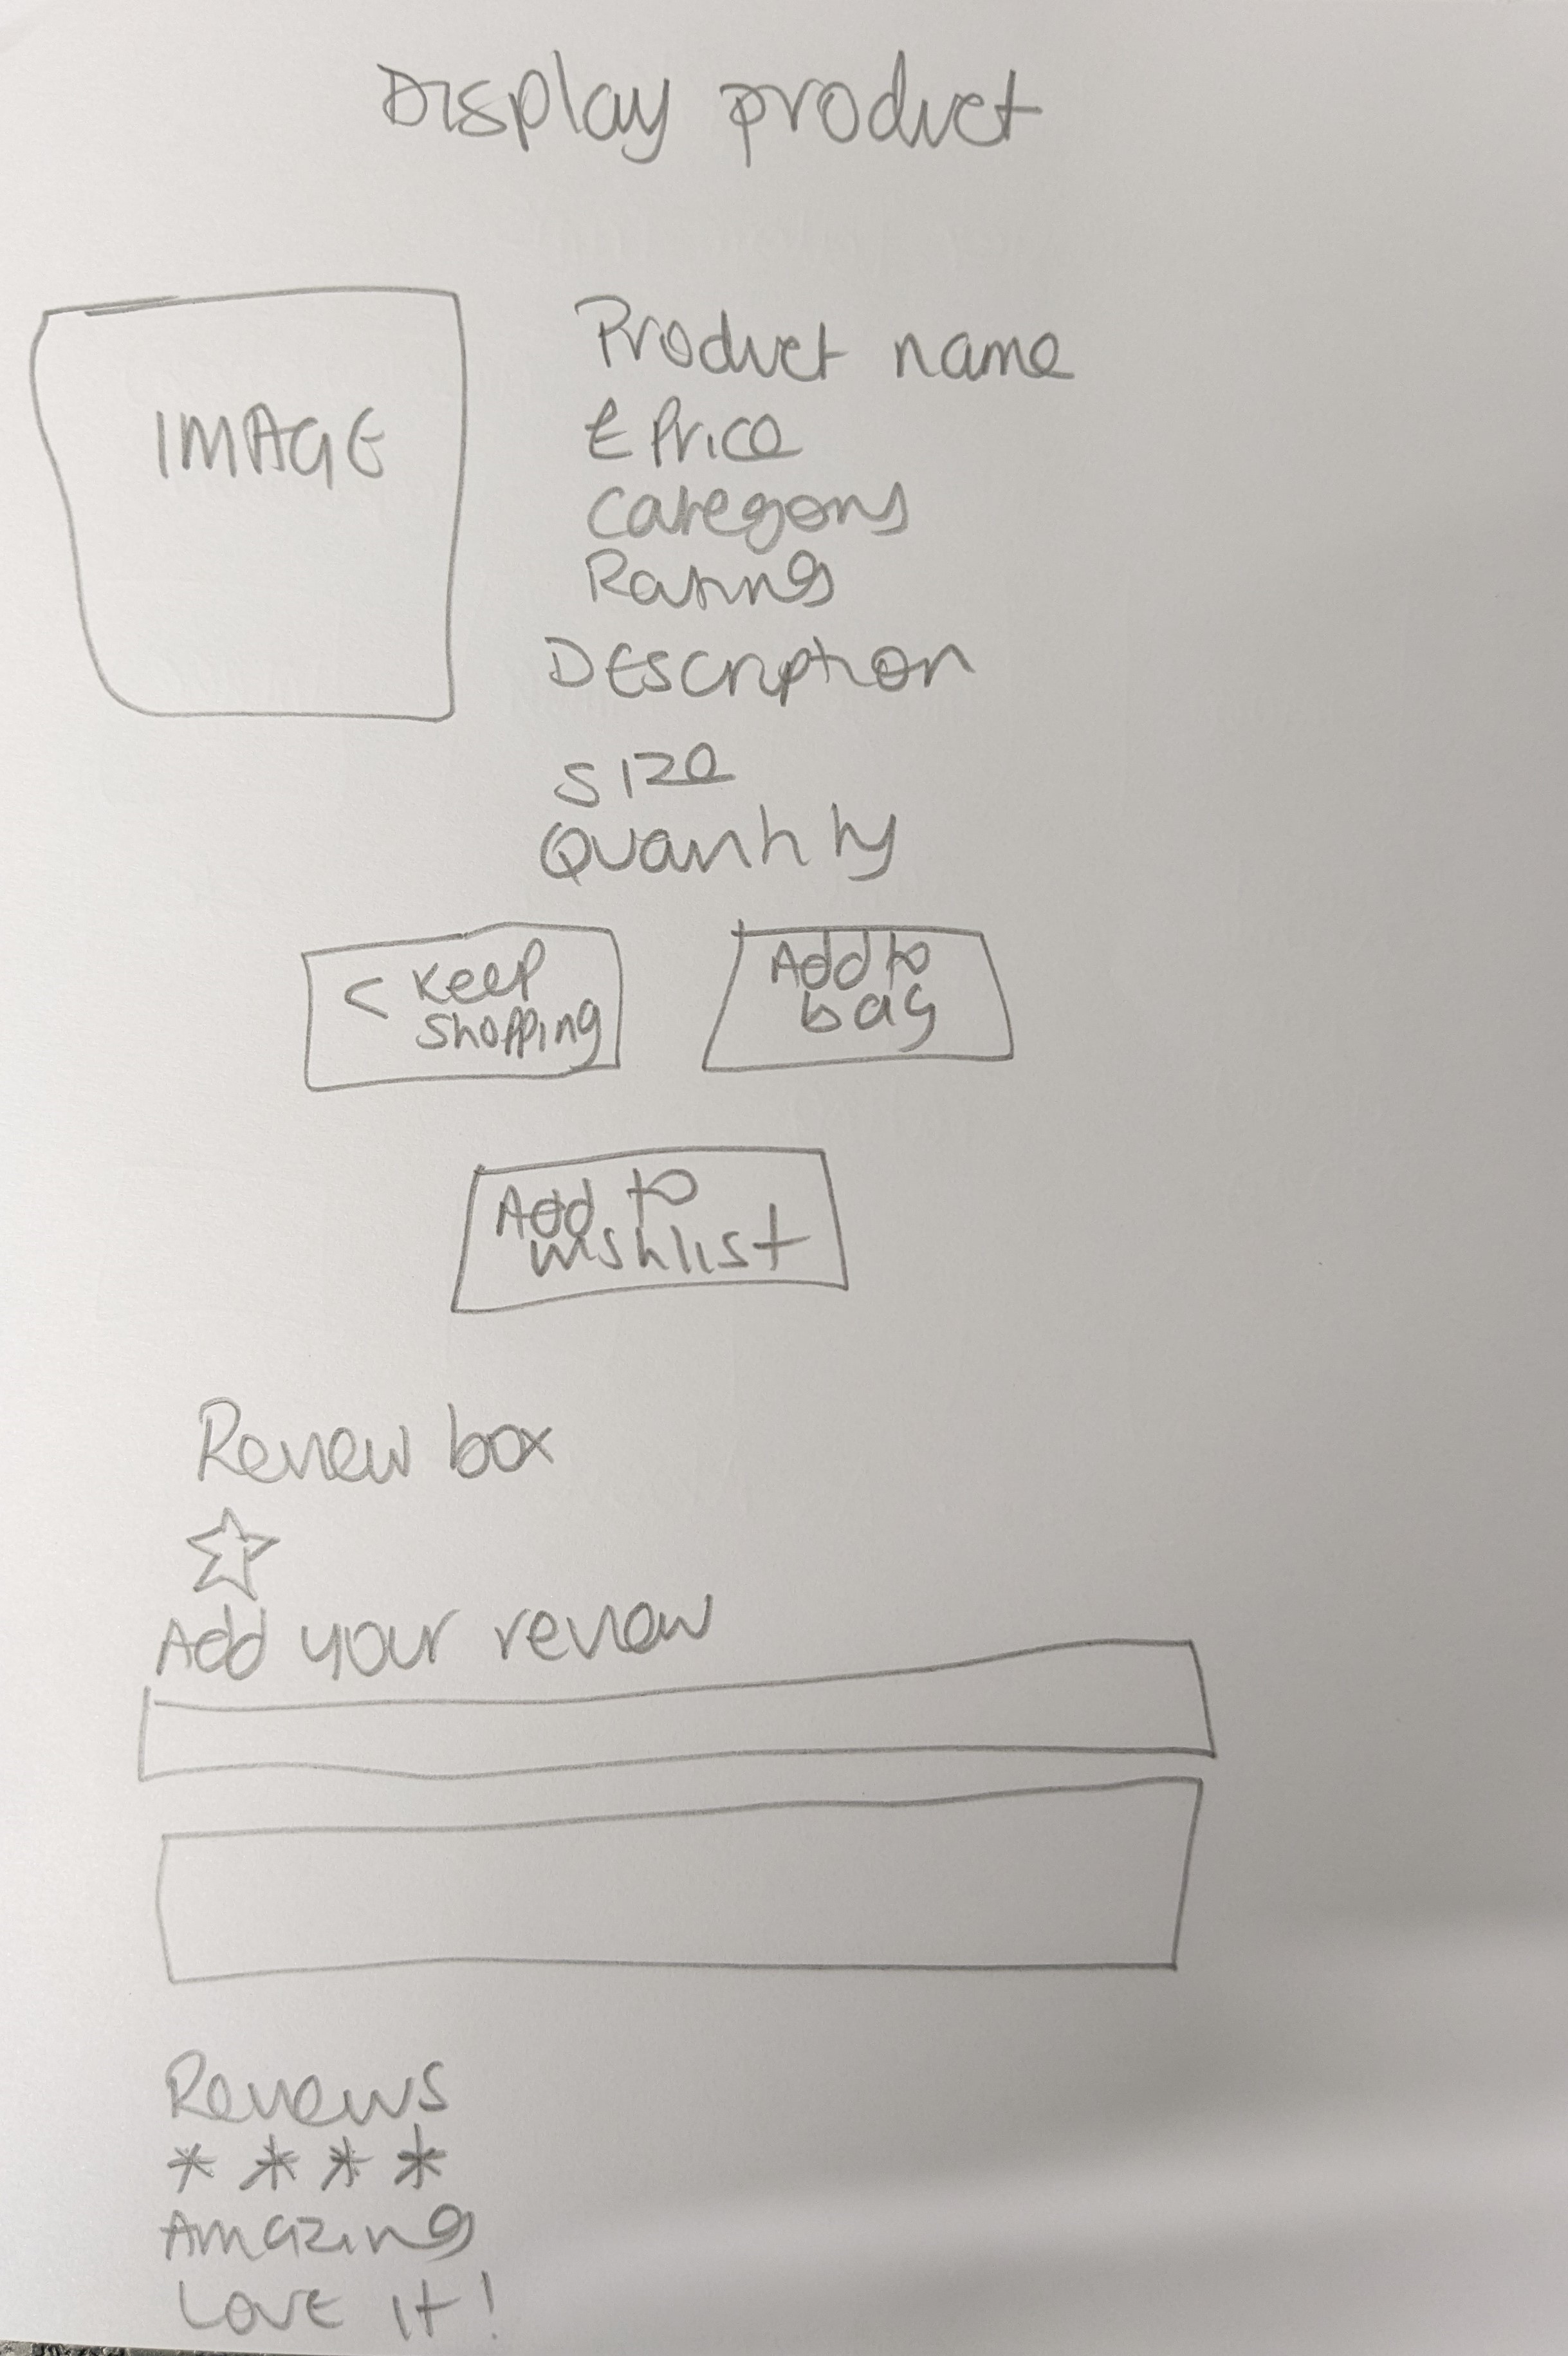 Display product
IMAGE
Product name
£ Price
Category
Rating
Description
Size
Quantity
< Keep
shopping
Add to
bag
Add to
wishlist
Review box
Add your review
Reviews
* * * *
Amazing
Love it!